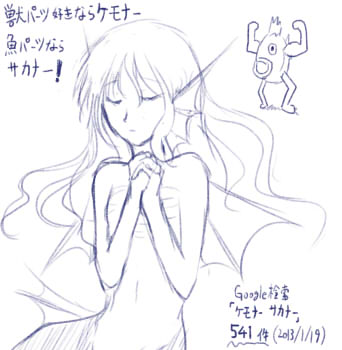 獣パーツ好きならケモナー
魚パーツなら
サカナー!
Google検索
「ケモナー サカナー」
541件(2013/1/19)